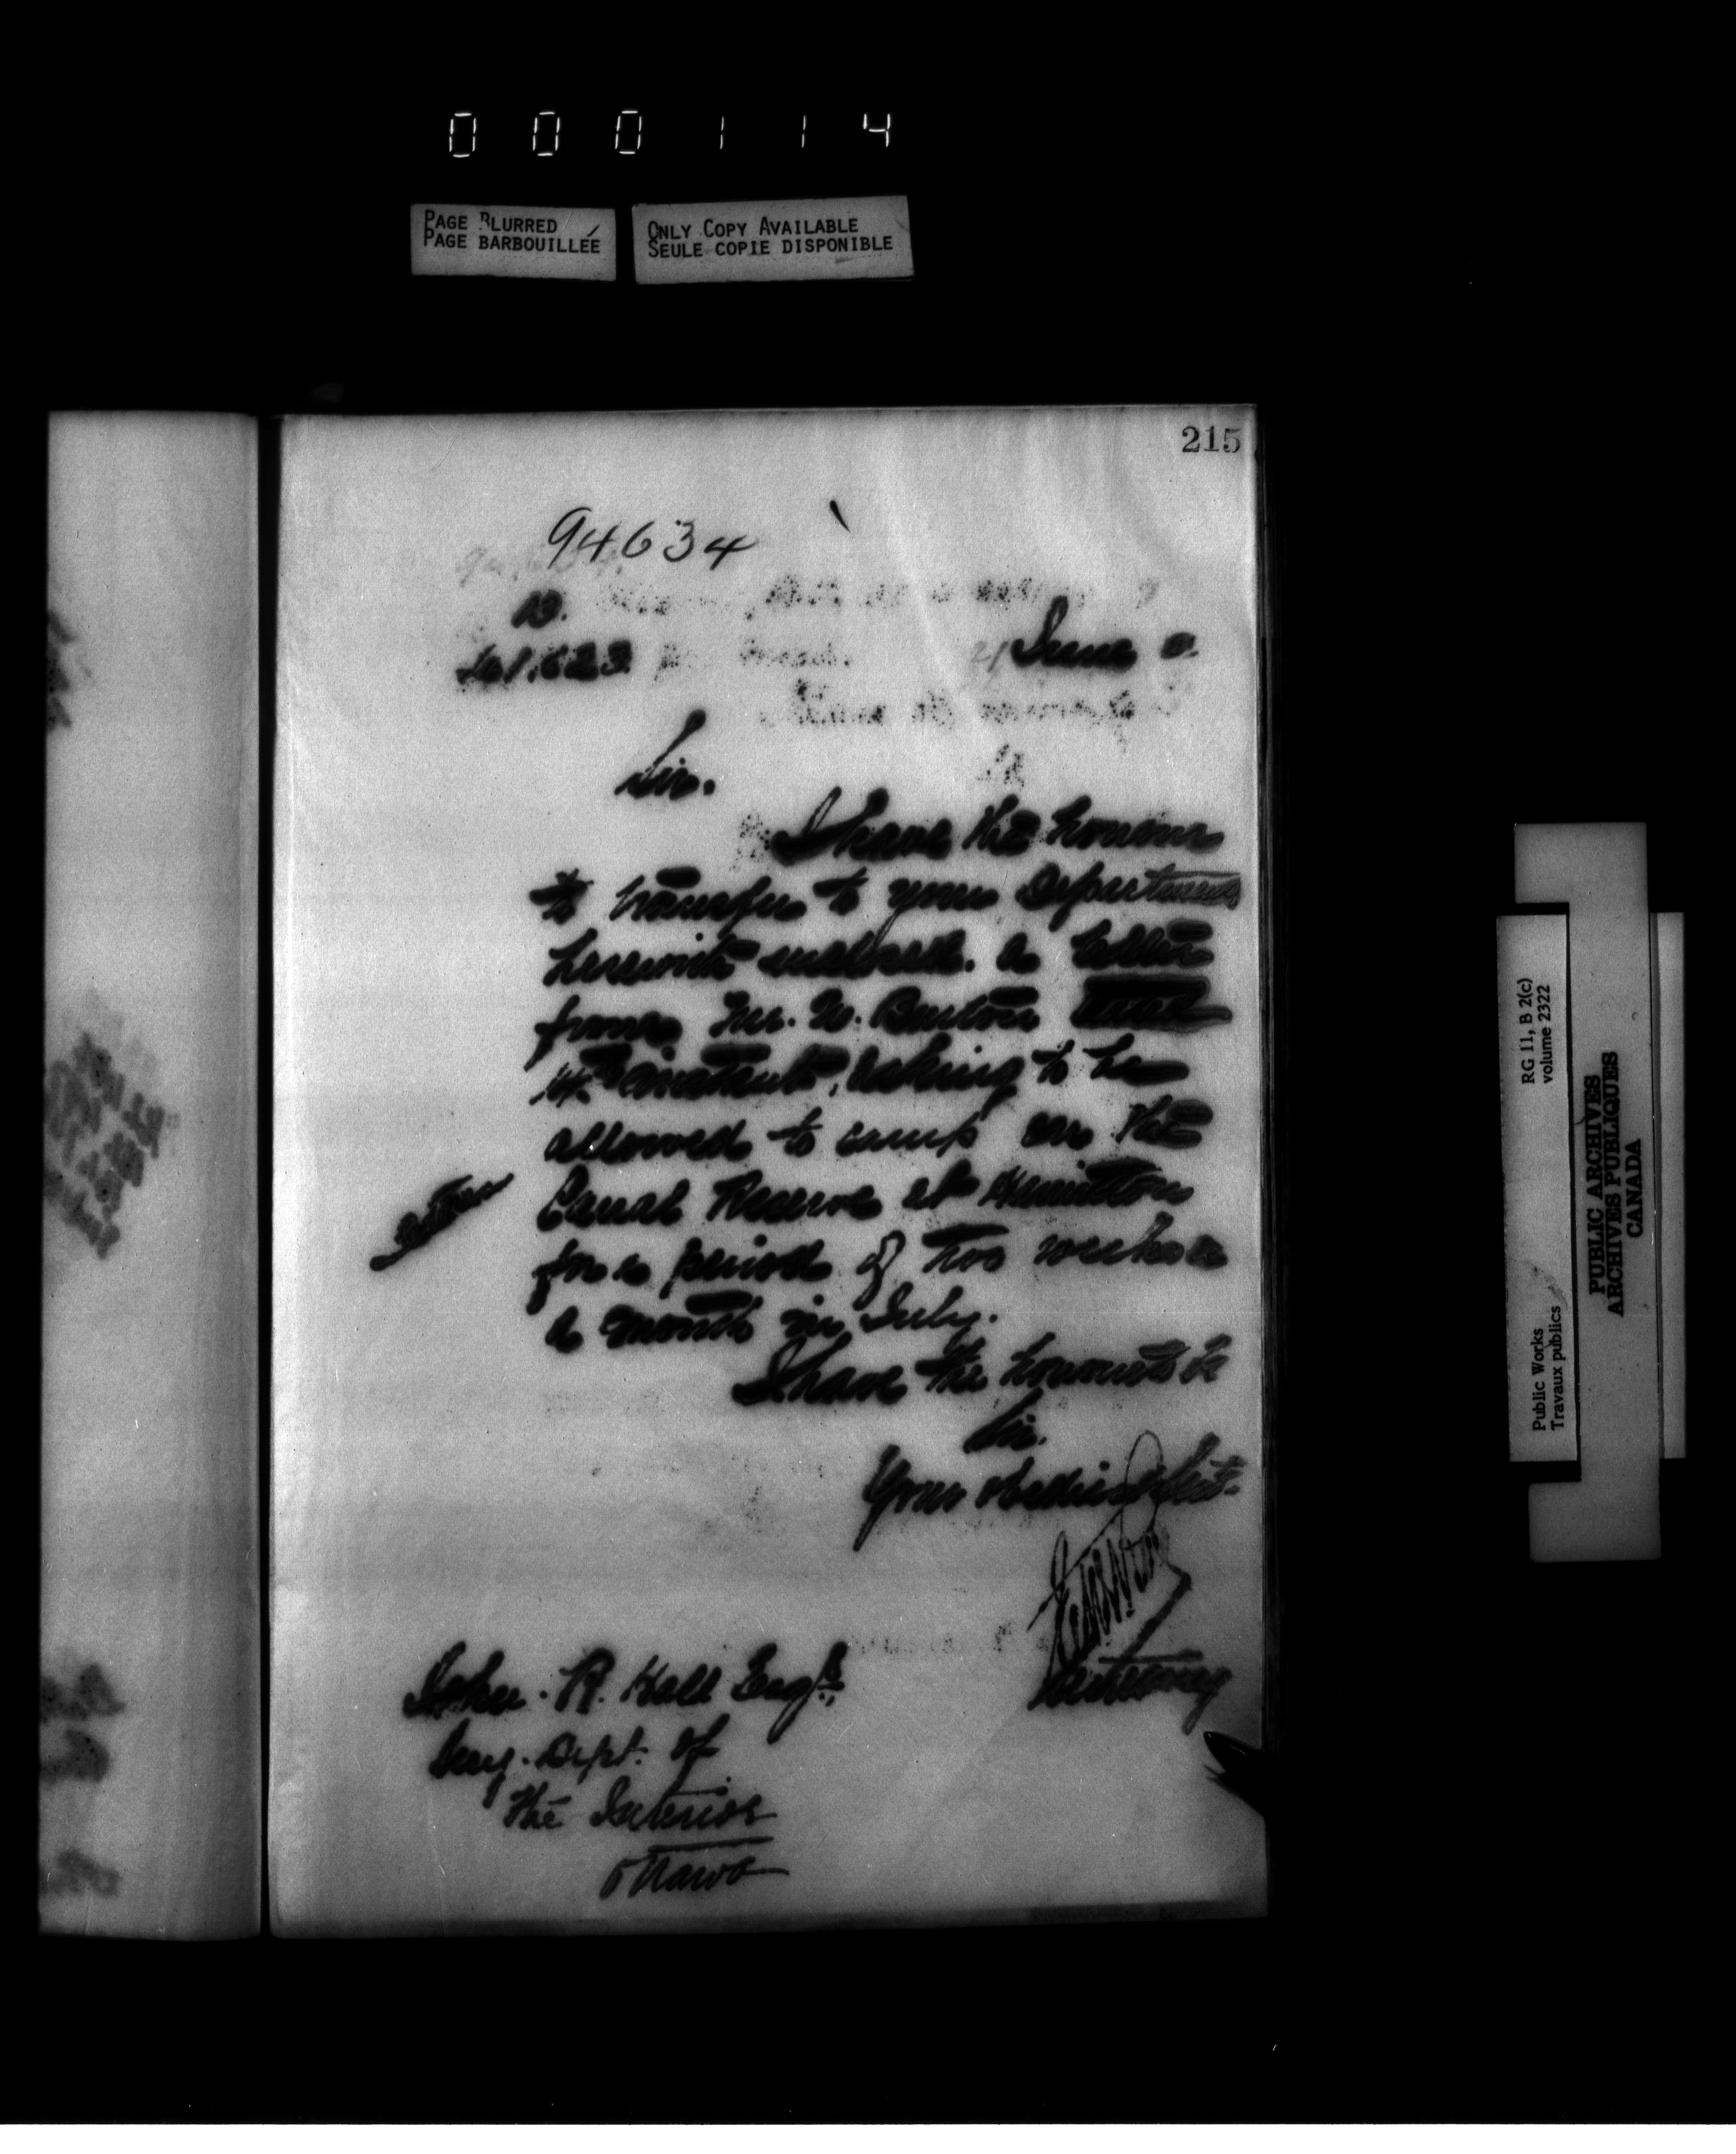 000114
PAGE BLURRED
PAGE BARBOUILLÉE
ONLY COPY AVAILABLE
SEULE COPIE DISPONIBLE
215
94634
June
Sir.
I have the honour
to transfer to your Department
herewith enclosed. a letter
from Mr. W. Burton
14th instant, asking to be
allowed to camp on the
Canal Reserve at
for a period of two weeks or
a month in July.
I have the honour to be
Sir.
Your obedient Servt.
Secretary
John. R. Hall Esqre
Secy. Dept. of
the Interior
Ottawa
RG 11, B 2(c)
volume 2322
Public Works
Travaux publics
PUBLIC ARCHIVES
ARCHIVES PUBLIQUES
CANADA